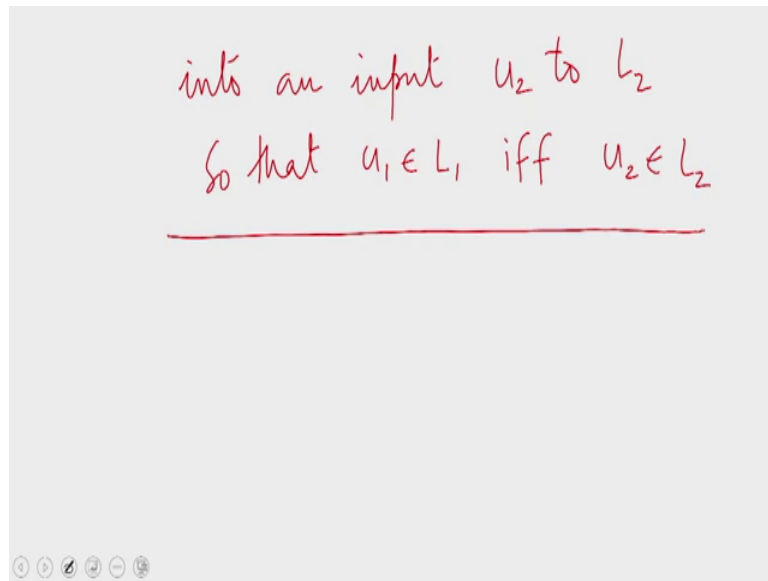 into an input u₂ to L₂
So that u₁ ∈ L₁ iff u₂ ∈ L₂